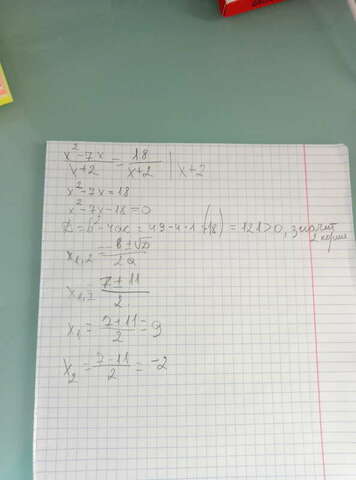 x² - 7x / x+2 = 18 / x+2 | x+2
x² - 7x = 18
x² - 7x - 18 = 0
D = b² - 4ac = 49 - 4·1·(-18) = 121 > 0, значит 2 корня
x₁,₂ = -b ± √D / 2a
x₁,₂ = 7 ± 11 / 2
x₁ = 7+11 / 2 = 9
x₂ = 7-11 / 2 = -2